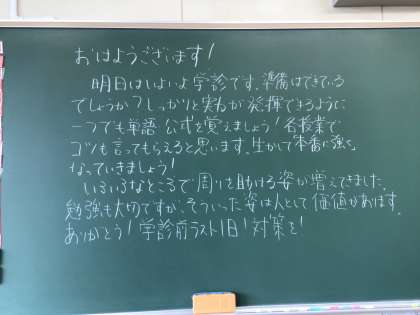 おはようございます!
明日はいよいよ学診です。準備はできている
でしょうか?しっかりと実力が発揮できるように
一つでも単語 公式を覚えましょう!各授業で
コツも言ってもらえると思います。生かして本番に強く
なっていきましょう!
いろいろなところで周りを助ける姿が増えてきました。
勉強も大切ですが、そういった姿は人として価値があります。
ありがとう!学診前ラスト1日!対策を!